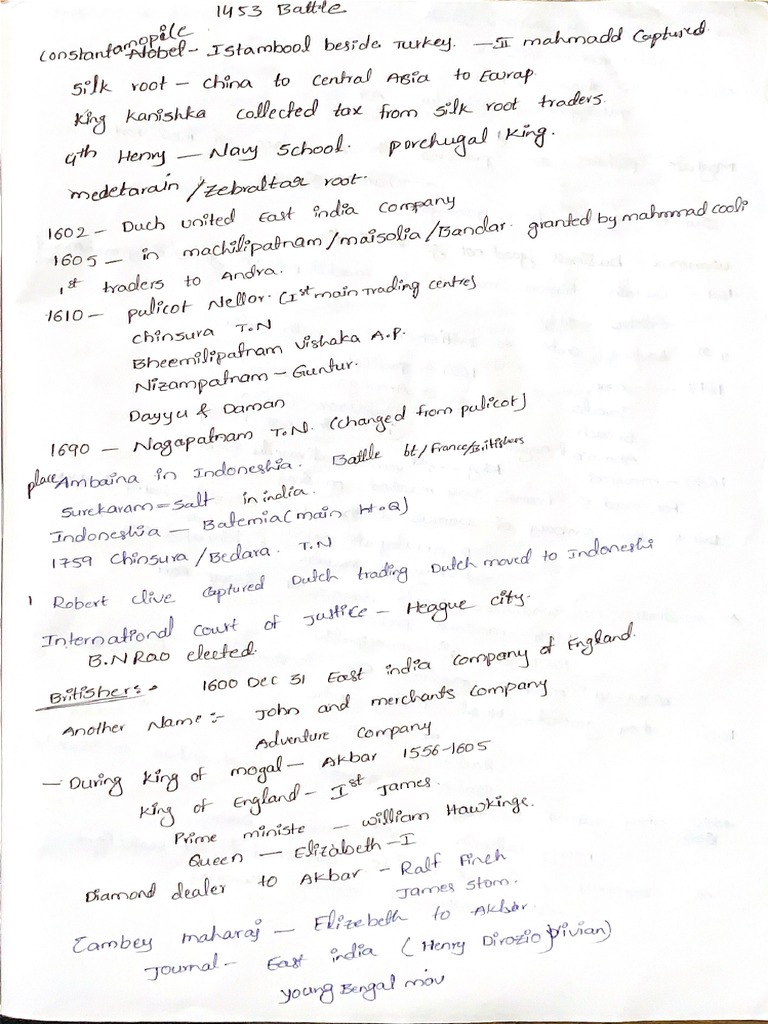 1453 Battle
Constantamopile
Nobel - Istambool beside Turkey. - II mahmadd Captured.
Silk root - China to Central Asia to Eaurap.
King Kanishka collected tax from silk root traders.
4th Henry - Navy School. porchugal King.
medetarain / Zebraltar root.
1602 - Duch united East india Company
1605 - in machilipatnam/maisolia/Bandar. granted by mahmmad cooli
1st traders to Andra.
1610 - pulicot Nellor. (Ist main Trading centre)
Chinsura T.N
Bheemilipatnam Vishaka A.P.
Nizampatnam - Guntur.
Dayyu & Daman
1690 - Nagapatnam T.N. (changed from pulicot)
place Ambaina in Indoneshia. Battle bt/France/Britishers
Surekaram = Salt in india.
Indoneshia - Batemia (main H.Q)
1759 Chinsura / Bedara. T.N
1 Robert clive captured Dutch trading Dutch moved to Indoneshi
International Court of Justice - Heague city.
B.N Rao elected.
Britisher:- 1600 Dec 31 East india Company of England.
Another Name:- John and merchants Company
Adventure Company
- During King of mogal - Akbar 1556-1605
King of England - Ist James.
Prime ministe - William Hawkings.
Queen - Elizabeth - I
Diamond dealer to Akbar - Ralf Finch
James Stom.
Cambey maharaj - Elizebeth to Akbar.
Journal - East india (Henry Dirozio Vivian)
young Bengal mov